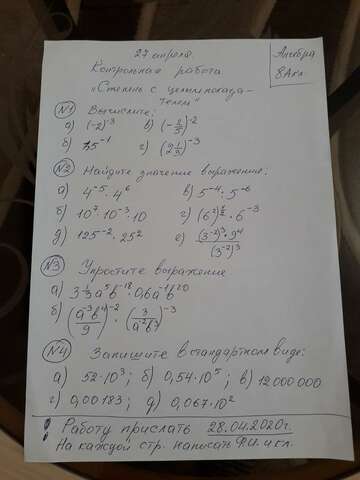 27 апреля.
Алгебра
8А кл.
Контрольная работа
"Степень с целым показа-
телем"
№1 Вычислите:
а) (-2)⁻³ в) (-2/5)⁻²
б) 15⁻¹ г) (2 1/3)⁻³
№2 Найдите значение выражение:
а) 4⁻⁵·4⁶ в) 5⁻⁴·5⁻⁶
б) 10⁷·10⁻³·10
д) 125⁻²·25² е) (3⁻²)³·9⁴/(3⁻²)³
№3 Упростите выражение
а) 3 1/3 a⁵b⁻¹⁸·0,6a⁻¹b²⁰
б) (a⁻³b⁴/9)⁻²·(3/a⁻²b³)⁻³
№4 Запишите в стандартном виде:
а) 52·10³; б) 0,54·10⁵; в) 12 000 000
г) 0,00183; д) 0,067·10²
! Работу прислать 28.04.2020г.
На каждой стр. написать Ф.И. и кл.